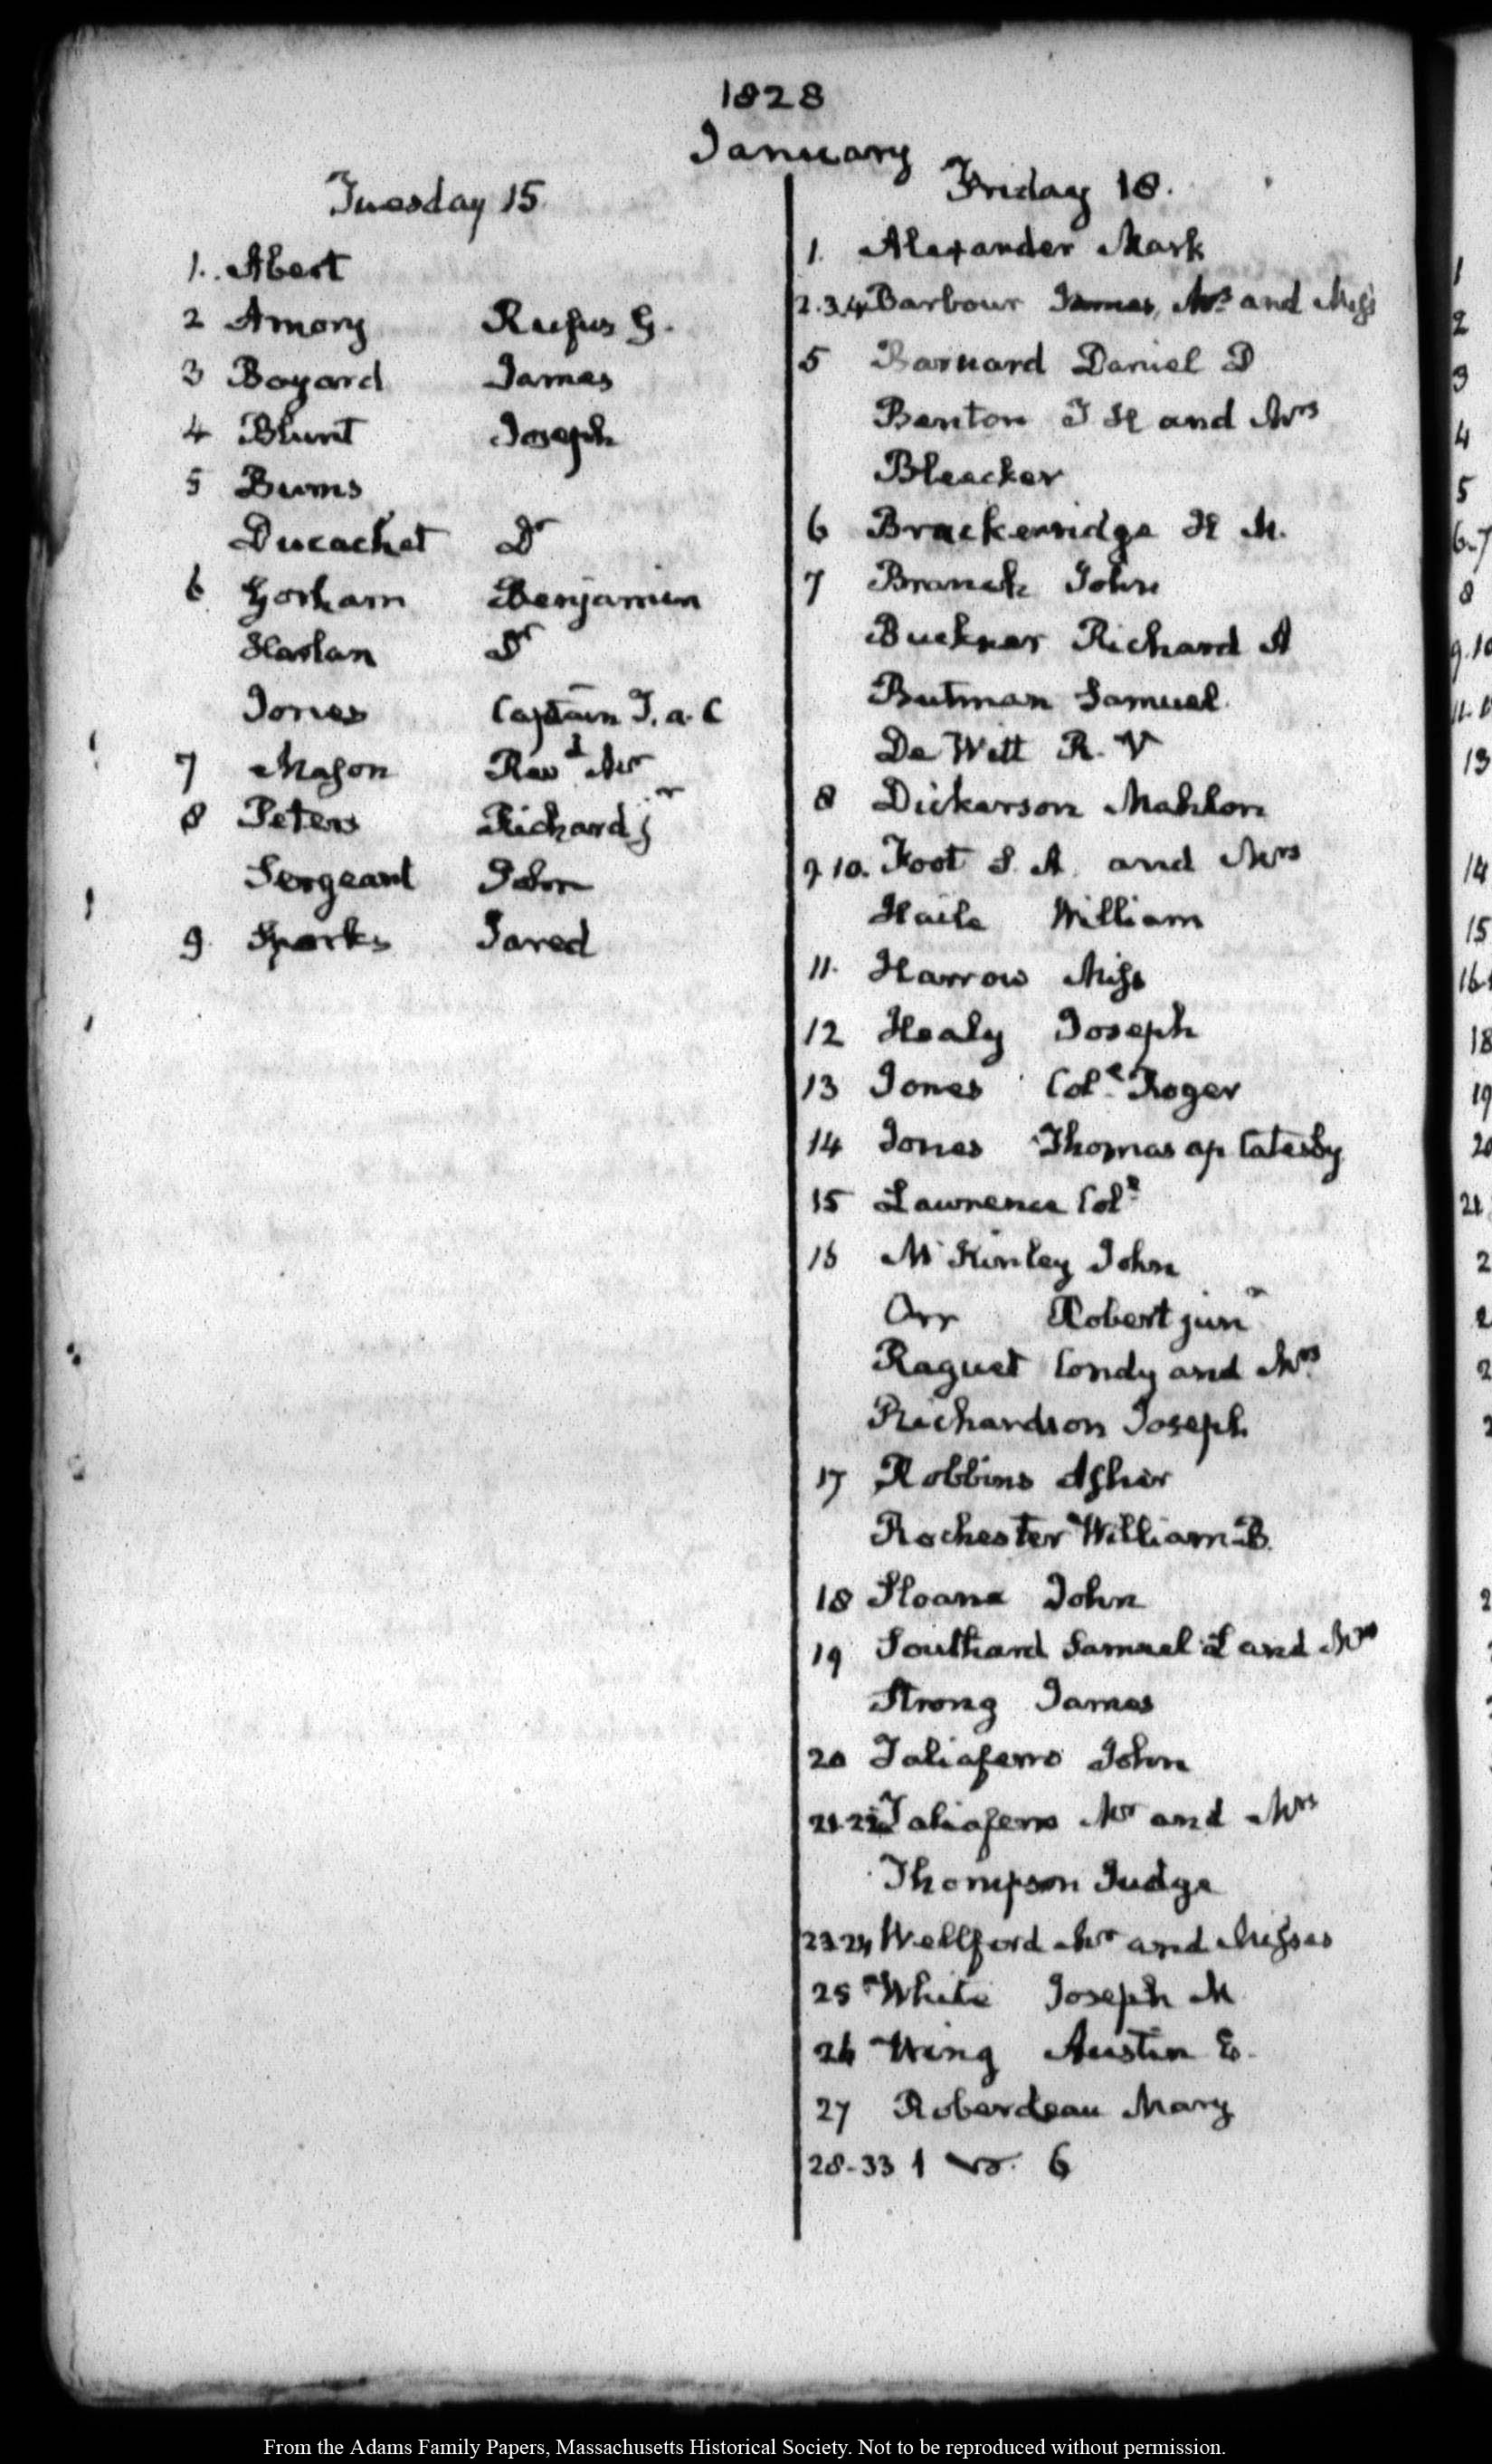 1828
January
Tuesday 15.
1. Abert
2 Amory Rufus G.
3 Bayard James
4 Blunt Joseph
5 Burns
Ducachet Dr
6 Gorham Benjamin
Harlan Dr
Jones Captain T. a. C
7 Mason Revd Mr
8 Peters Richard jr
Sergeant John
9. Sparks Jared
Friday 18.
1. Alexander Mark
2.3.4 Barbour James, Mrs and Miss
5 Barnard Daniel D
Benton T H and Mrs
Bleecker
6 Brackenridge H M.
7 Branch John
Buckner Richard A
Butman Samuel.
De Witt R. V
8 Dickerson Mahlon
9.10. Foot S. A. and Mrs
Haile William
11. Harrow Miss
12 Healy Joseph
13 Jones Coll. Roger
14 Jones Thomas ap Catesby
15 Lawrence Coll
16 McKinley John
Orr Robert junr
Raguet Condy and Mrs
Richardson Joseph
17 Robbins Asher
Rochester William B.
18 Sloane John
19 Southard Samuel L and Mrs
Strong James
20 Taliaferro John
21-22 Taliaferro Mr and Mrs
Thompson Judge
23.24 Wellford Mr and Misses
25 White Joseph M
26 Wing Austin E.
27 Roberdeau Mary
28-33 1 6
1
2
3
4
5
6-7
8
9.10
13
14
15
18
19
20
21
From the Adams Family Papers, Massachusetts Historical Society. Not to be reproduced without permission.